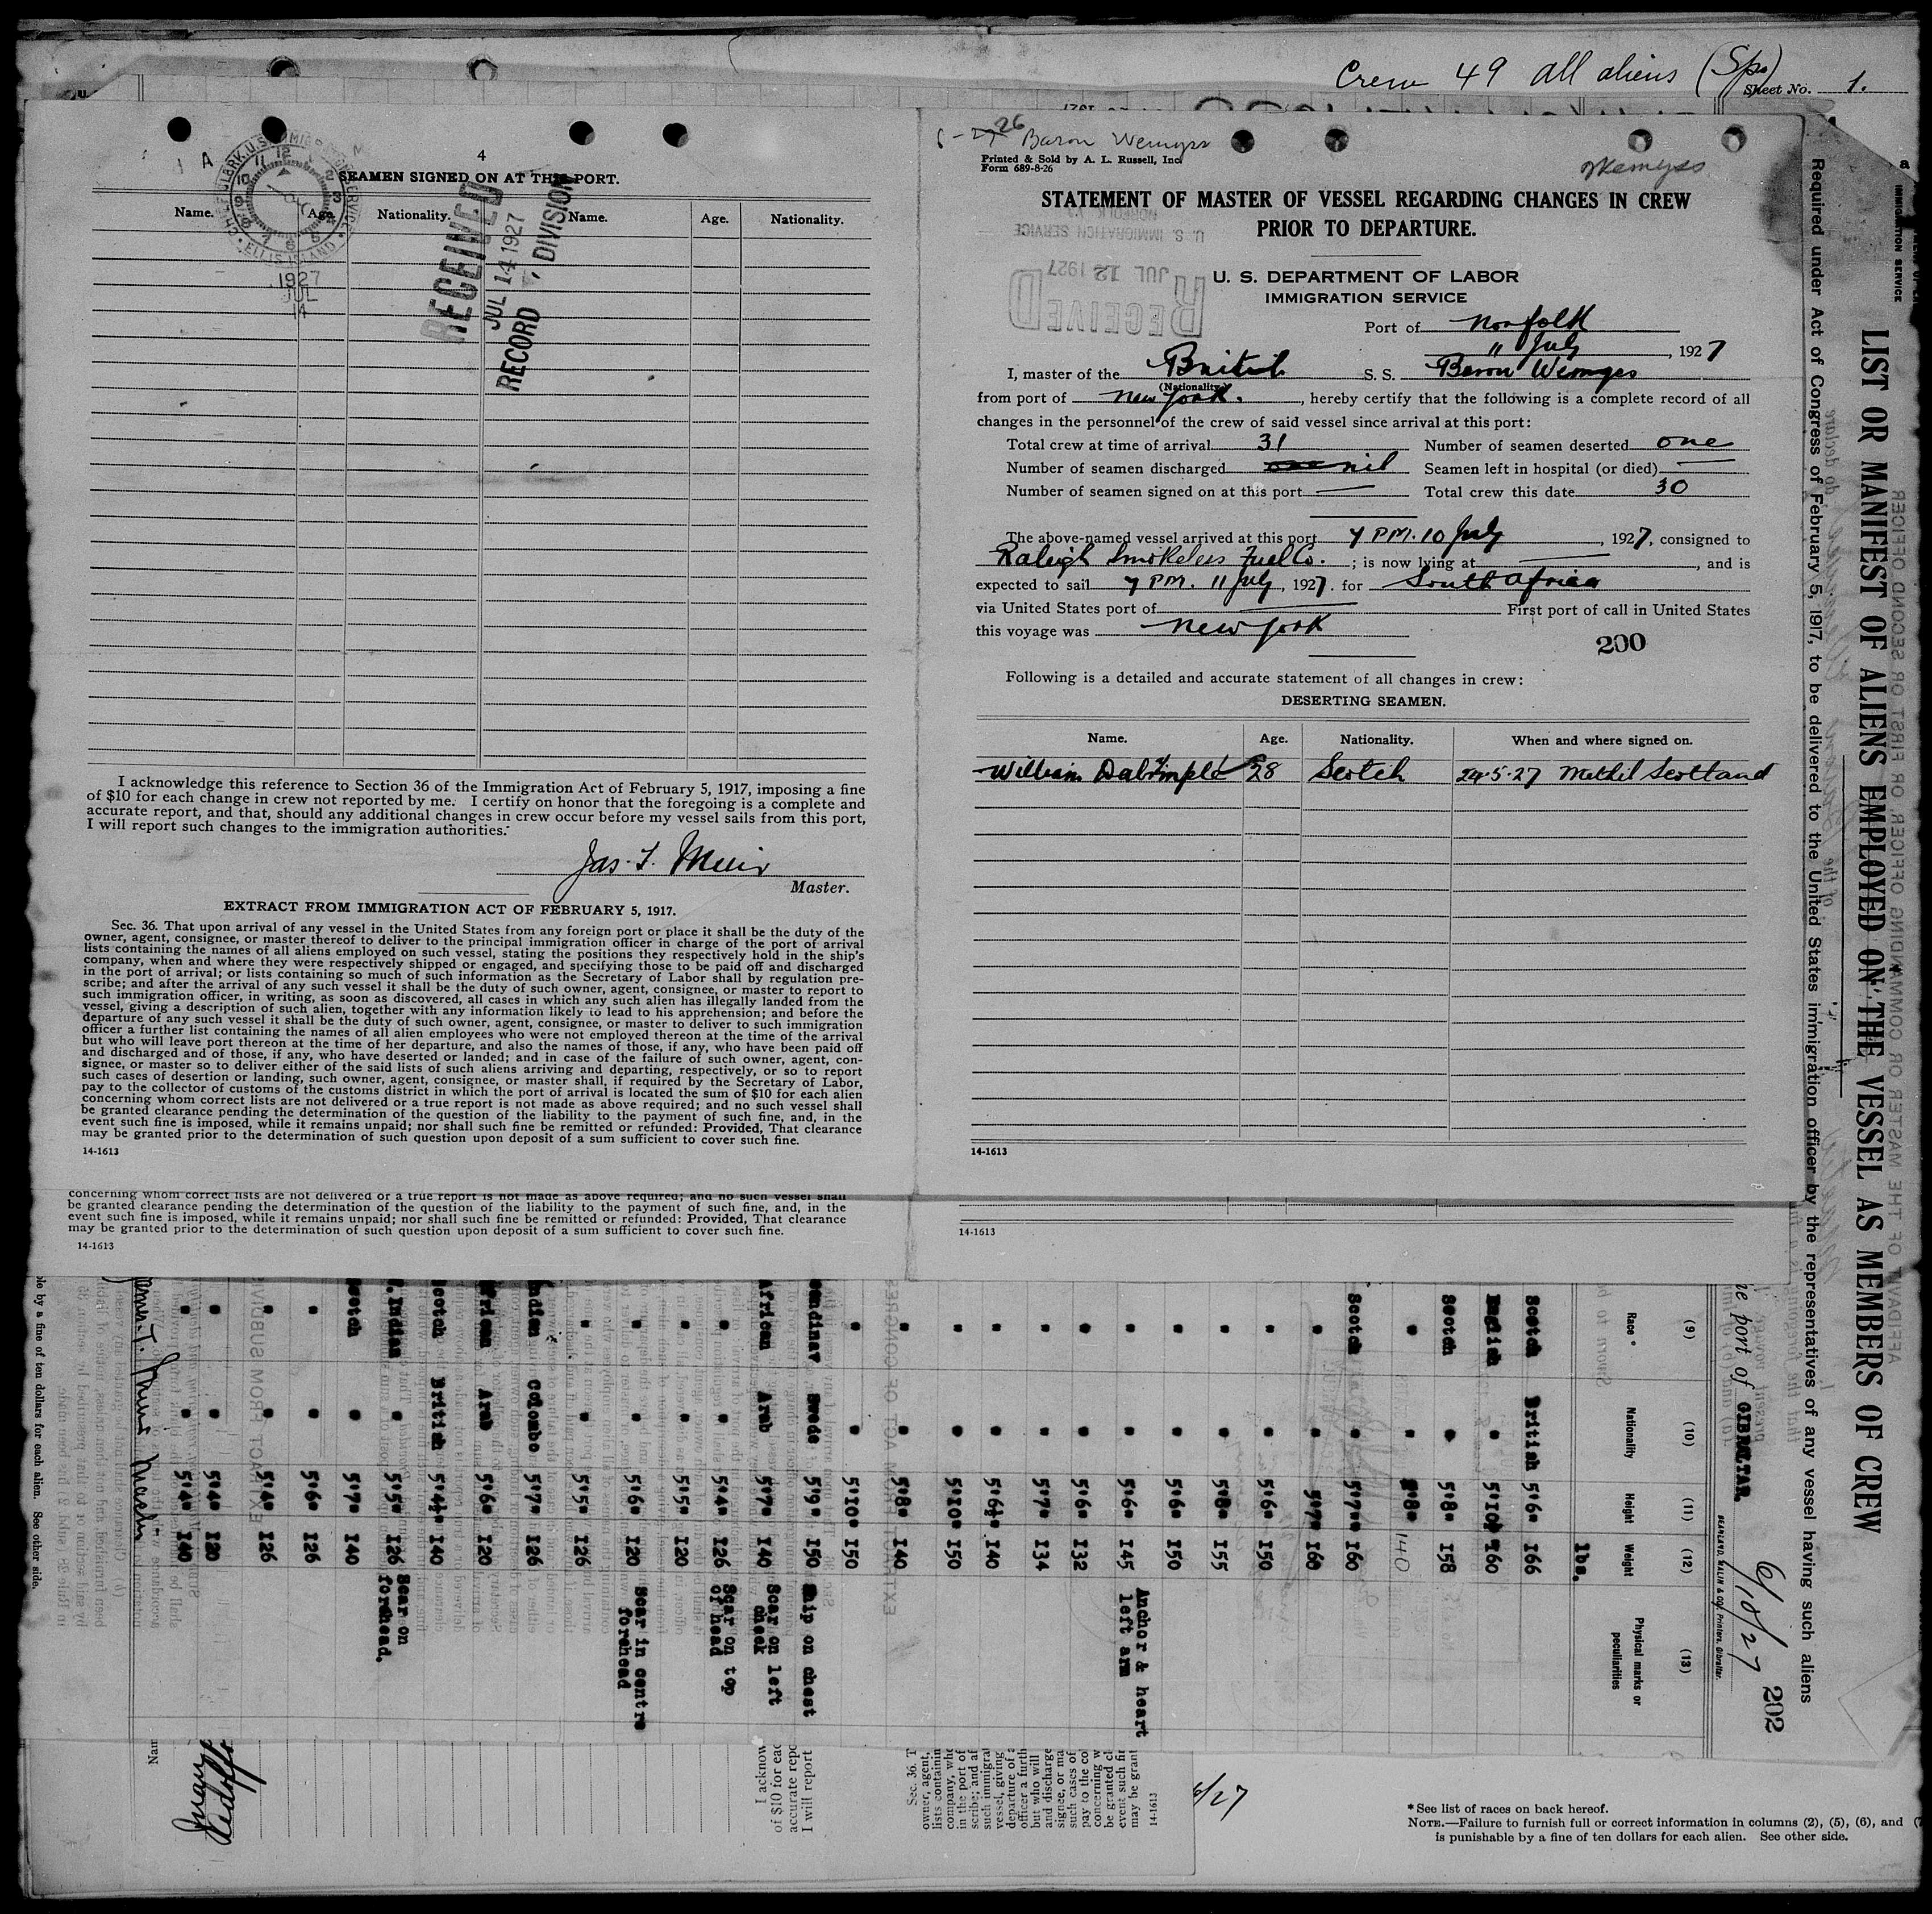 Crew 49 all aliens (Sps)
Sheet No. 1.
4
SEAMEN SIGNED ON AT THIS PORT.
Name. Age. Nationality. Name. Age. Nationality.
ELLIS ISLAND
1927
JUL
14
RECEIVED
JUL 14 1927
RECORD DIVISION
I acknowledge this reference to Section 36 of the Immigration Act of February 5, 1917, imposing a fine
of $10 for each change in crew not reported by me. I certify on honor that the foregoing is a complete and
accurate report, and that, should any additional changes in crew occur before my vessel sails from this port,
I will report such changes to the immigration authorities.
Jas. T. Muir
Master.
EXTRACT FROM IMMIGRATION ACT OF FEBRUARY 5, 1917.
Sec. 36. That upon arrival of any vessel in the United States from any foreign port or place it shall be the duty of the
owner, agent, consignee, or master thereof to deliver to the principal immigration officer in charge of the port of arrival
lists containing the names of all aliens employed on such vessel, stating the positions they respectively hold in the ship's
company, when and where they were respectively shipped or engaged, and specifying those to be paid off and discharged
in the port of arrival; or lists containing so much of such information as the Secretary of Labor shall by regulation pre-
scribe; and after the arrival of any such vessel it shall be the duty of such owner, agent, consignee, or master to report to
such immigration officer, in writing, as soon as discovered, all cases in which any such alien has illegally landed from the
vessel, giving a description of such alien, together with any information likely to lead to his apprehension; and before the
departure of any such vessel it shall be the duty of such owner, agent, consignee, or master to deliver to such immigration
officer a further list containing the names of all alien employees who were not employed thereon at the time of the arrival
but who will leave port thereon at the time of her departure, and also the names of those, if any, who have been paid off
and discharged and of those, if any, who have deserted or landed; and in case of the failure of such owner, agent, con-
signee, or master so to deliver either of the said lists of such aliens arriving and departing, respectively, or so to report
such cases of desertion or landing, such owner, agent, consignee, or master shall, if required by the Secretary of Labor,
pay to the collector of customs of the customs district in which the port of arrival is located the sum of $10 for each alien
concerning whom correct lists are not delivered or a true report is not made as above required; and no such vessel shall
be granted clearance pending the determination of the question of the liability to the payment of such fine, and, in the
event such fine is imposed, while it remains unpaid; nor shall such fine be remitted or refunded: Provided, That clearance
may be granted prior to the determination of such question upon deposit of a sum sufficient to cover such fine.
14-1613
concerning whom correct lists are not delivered or a true report is not made as above required; and no such vessel shall
be granted clearance pending the determination of the question of the liability to the payment of such fine, and, in the
event such fine is imposed, while it remains unpaid; nor shall such fine be remitted or refunded: Provided, That clearance
may be granted prior to the determination of such question upon deposit of a sum sufficient to cover such fine.
14-1613
26 Baron Wemyss
Printed & Sold by A. L. Russell, Inc.
Form 689-8-26
Wemyss
STATEMENT OF MASTER OF VESSEL REGARDING CHANGES IN CREW
PRIOR TO DEPARTURE.
U. S. IMMIGRATION SERVICE
JUL 12 1927
RECEIVED
U. S. DEPARTMENT OF LABOR
IMMIGRATION SERVICE
Port of Norfolk
11 July, 1927
I, master of the British S. S. Baron Wemyss
(Nationality)
from port of New York., hereby certify that the following is a complete record of all
changes in the personnel of the crew of said vessel since arrival at this port:
Total crew at time of arrival 31 Number of seamen deserted one
Number of seamen discharged one nil Seamen left in hospital (or died) —
Number of seamen signed on at this port — Total crew this date 30
The above-named vessel arrived at this port 7 PM. 10 July, 1927, consigned to
Raleigh Smokeless Fuel Co.; is now lying at —, and is
expected to sail 7 PM. 11 July, 1927. for South Africa
via United States port of — First port of call in United States
this voyage was New York
200
Following is a detailed and accurate statement of all changes in crew:
DESERTING SEAMEN.
Name. Age. Nationality. When and where signed on.
William Dalrimple 28 Scotch 24.5.27 Methil Scotland
14-1613
14-1613
LIST OR MANIFEST OF ALIENS EMPLOYED ON THE VESSEL AS MEMBERS OF CREW
Required under Act of Congress of February 5, 1917, to be delivered to the United States immigration officer by the representatives of any vessel having such aliens
AFFIDAVIT OF THE MASTER OR COMMANDING OFFICER, OR FIRST OR SECOND OFFICER
IMMIGRATION SERVICE
the port of GIBRALTAR. 6/10/27
202
BEANLAND, MALIN & CO., Printers, Gibraltar.
(9) (10) (11) (12) (13)
Race * Nationality Height Weight Physical marks or peculiarities
lbs.
Scotch British 5'6" 166
English " 5'10½ 160
Scotch " 5'8" 158
" " 5'8" 140
Scotch " 5'7" 160
" " 5'7" 160
" " 5'6" 150
" " 5'8" 155
" " 5'6" 150
" " 5'6" 145 Anchor & heart left arm
" " 5'6" 132
" " 5'7" 134
" " 5'6½" 140
" " 5'10" 150
" " 5'8" 140
" " 5'10" 150
Scandinav Swede 5'9" 150 Ship on chest
African Arab 5'7" 140 Scar on left cheek
" " 5'4" 126 Scar on top of head
" " 5'5" 120
" " 5'6" 120 Scar in centre forehead
" " 5'5" 126
Indian Colombo 5'7" 126
African Arab 5'6" 120
Scotch British 5'4½" 140
W.Indian " 5'5" 126 Scar on forehead.
Scotch " 5'7" 140
" " 5'6" 126
" " 5'4" 126
" " 5'4" 120
" " 5'4" 140
James T. Muir Master
EXTRACT FROM SUBDIV
EXTRACT FROM ACT OF CONGRES
ble by a fine of ten dollars for each alien. See other side.
Nam
I acknow
of $10 for eac
accurate repo
I will report
Sec. 36. T
owner, agent,
lists containin
company, whe
in the port of
scribe; and af
such immigra
vessel, giving
departure of a
officer a furth
but who will
and discharge
signee, or ma
such cases of
pay to the co
concerning w
be granted cl
event such fin
may be grant
14-1613
6/27
* See list of races on back hereof.
NOTE.—Failure to furnish full or correct information in columns (2), (5), (6), and
is punishable by a fine of ten dollars for each alien. See other side.